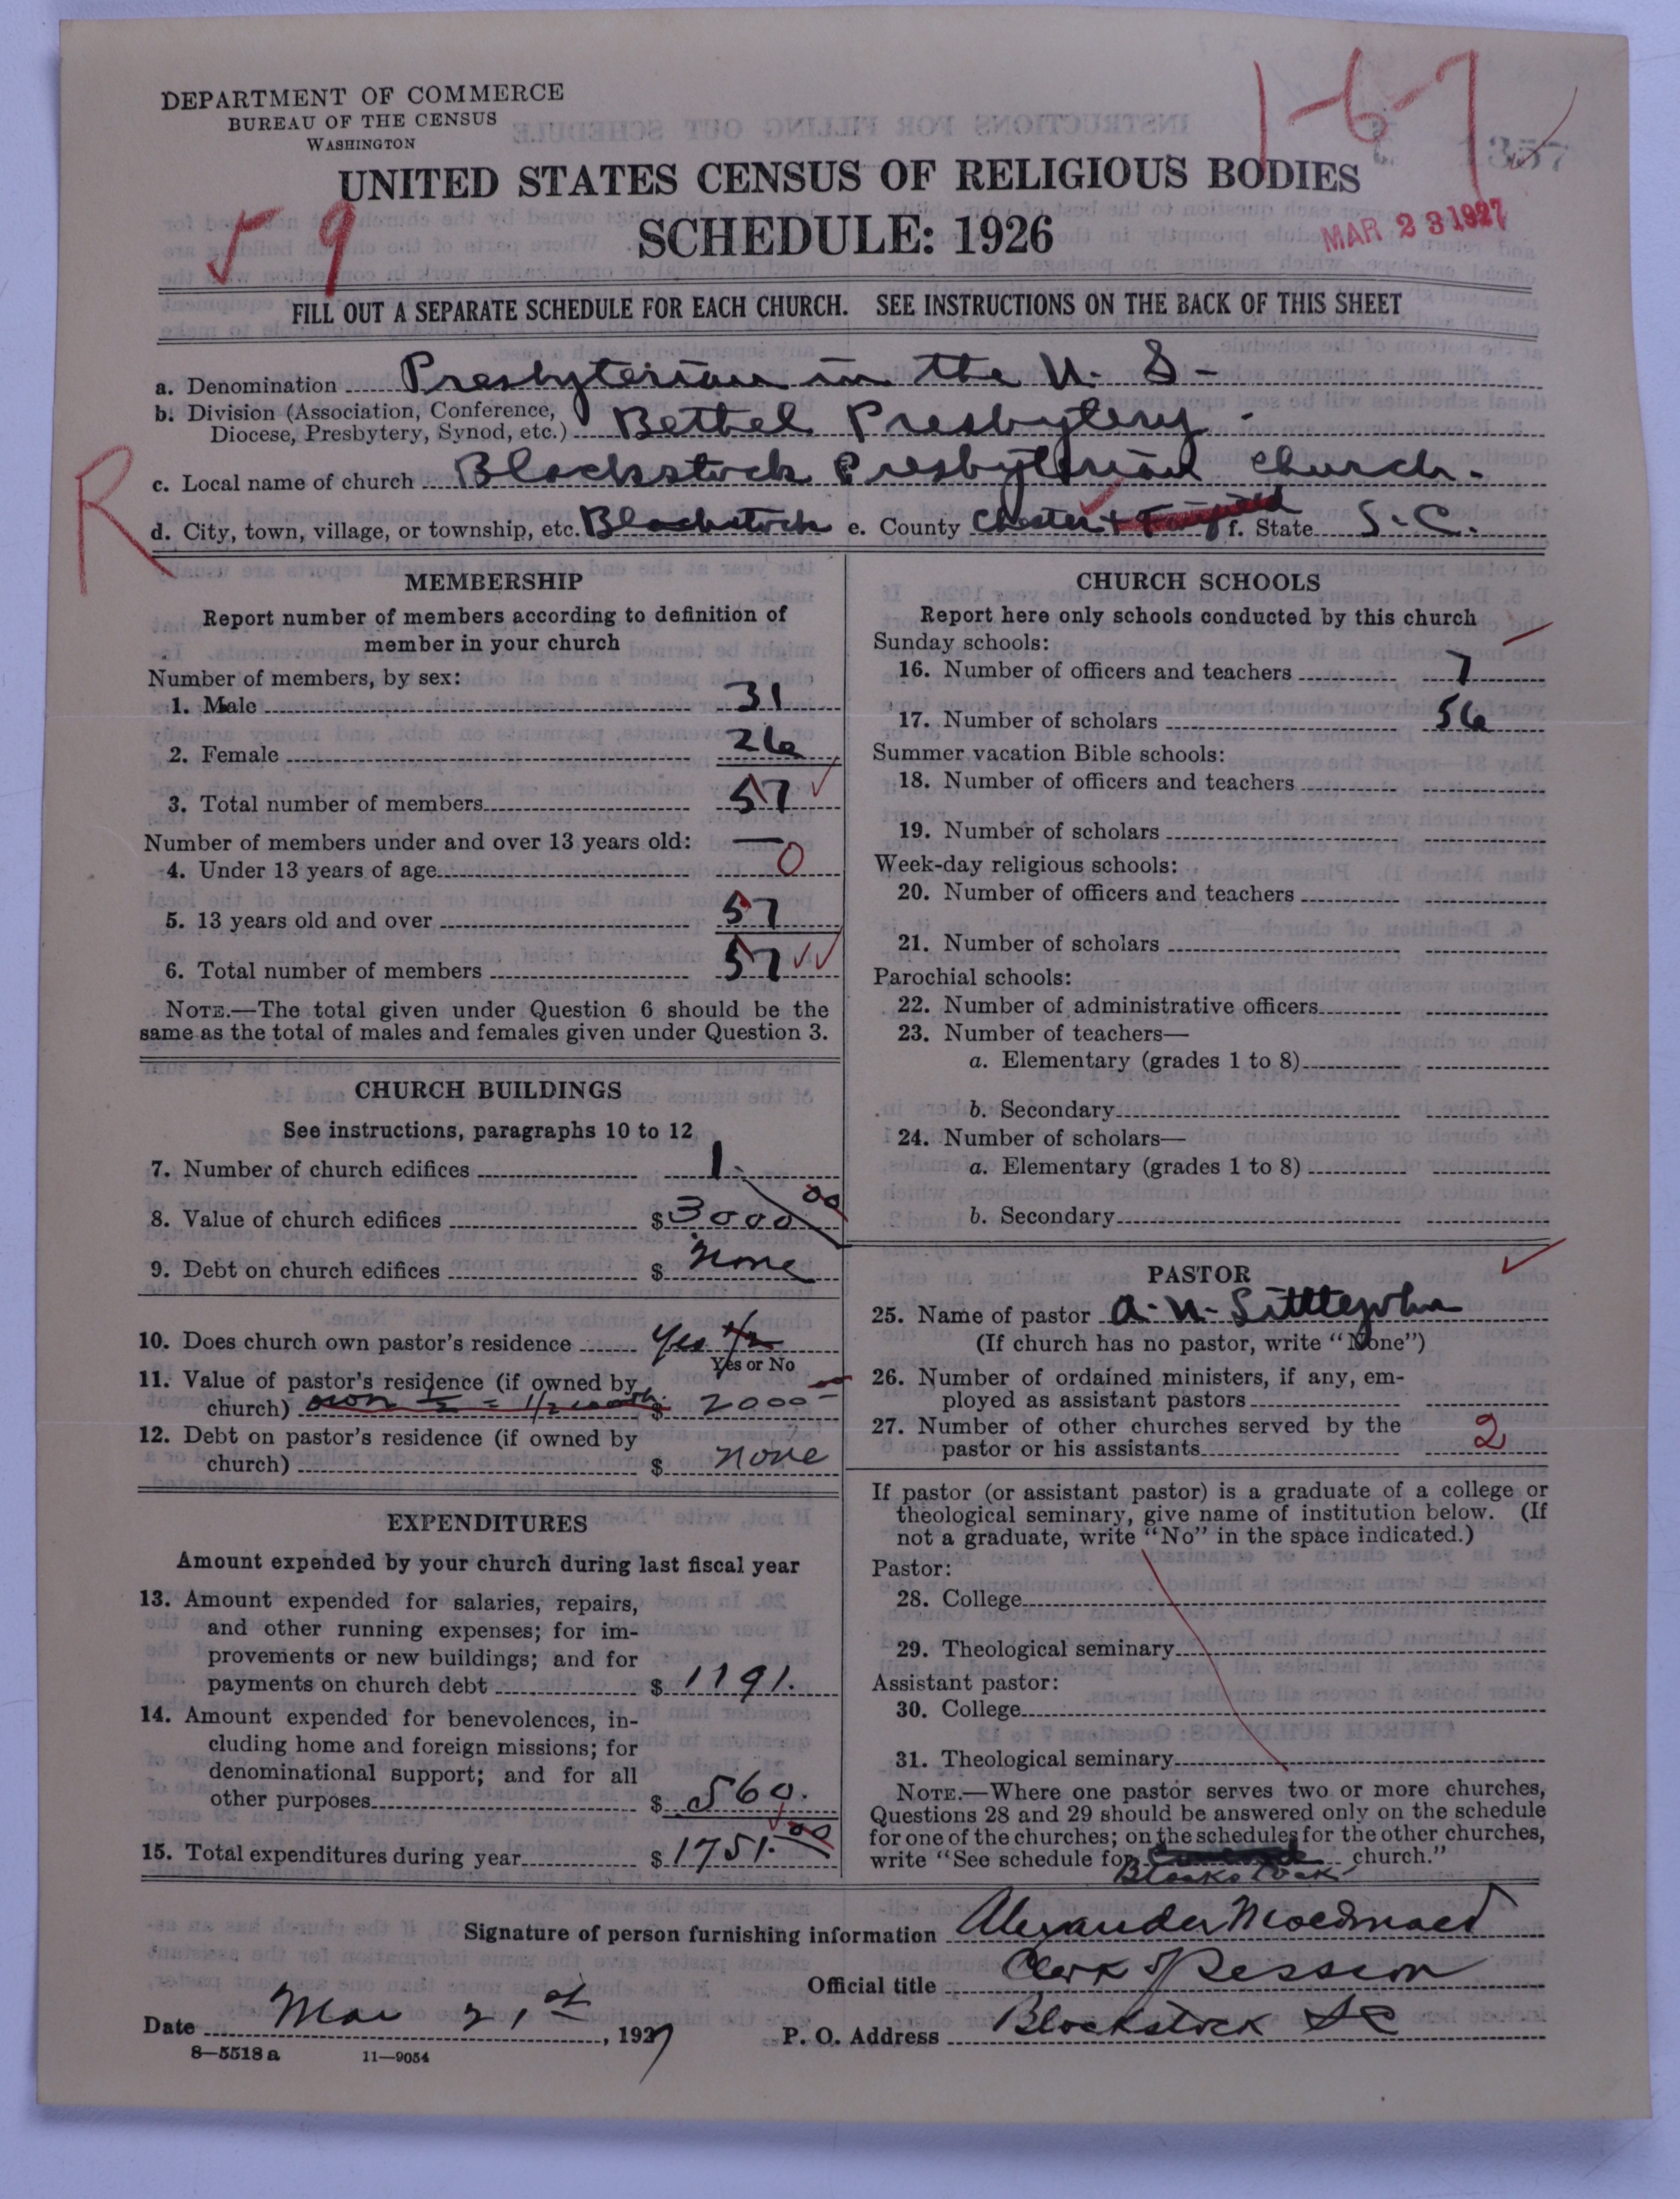 1-6-7
DEPARTMENT OF COMMERCE
BUREAU OF THE CENSUS
WASHINGTON
1357
UNITED STATES CENSUS OF RELIGIOUS BODIES
SCHEDULE: 1926
9
MAR 23 1927
FILL OUT A SEPARATE SCHEDULE FOR EACH CHURCH. SEE INSTRUCTIONS ON THE BACK OF THIS SHEET
a. Denomination Presbyterian in the U. S-
b. Division (Association, Conference,
Diocese, Presbytery, Synod, etc.) Bethel Presbytery.
R
c. Local name of church Blackstock Presbyterian Church.
d. City, town, village, or township, etc. Blackstock e. County Chester + Fairfield f. State S.C.
MEMBERSHIP
Report number of members according to definition of
member in your church
Number of members, by sex:
1. Male 31
2. Female 26
3. Total number of members 57
Number of members under and over 13 years old:
4. Under 13 years of age — 0
5. 13 years old and over 57
6. Total number of members 57
NOTE.—The total given under Question 6 should be the
same as the total of males and females given under Question 3.
CHURCH BUILDINGS
See instructions, paragraphs 10 to 12
7. Number of church edifices 1
8. Value of church edifices $3000 00
9. Debt on church edifices $ none
10. Does church own pastor's residence yes 1/2
Yes or No
11. Value of pastor's residence (if owned by
church) own 1/2 = 1/2 worth $ 2000
12. Debt on pastor's residence (if owned by
church) $ none
EXPENDITURES
Amount expended by your church during last fiscal year
13. Amount expended for salaries, repairs,
and other running expenses; for im-
provements or new buildings; and for
payments on church debt $ 1191.
14. Amount expended for benevolences, in-
cluding home and foreign missions; for
denominational support; and for all
other purposes $ 560.
15. Total expenditures during year $ 1751. 00
CHURCH SCHOOLS
Report here only schools conducted by this church
Sunday schools:
16. Number of officers and teachers 7
17. Number of scholars 56
Summer vacation Bible schools:
18. Number of officers and teachers
19. Number of scholars
Week-day religious schools:
20. Number of officers and teachers
21. Number of scholars
Parochial schools:
22. Number of administrative officers
23. Number of teachers—
a. Elementary (grades 1 to 8)
b. Secondary
24. Number of scholars—
a. Elementary (grades 1 to 8)
b. Secondary
PASTOR
25. Name of pastor A. N. Littlejohn
(If church has no pastor, write "None")
26. Number of ordained ministers, if any, em-
ployed as assistant pastors
27. Number of other churches served by the
pastor or his assistants 2
If pastor (or assistant pastor) is a graduate of a college or
theological seminary, give name of institution below. (If
not a graduate, write "No" in the space indicated.)
Pastor:
28. College
29. Theological seminary
Assistant pastor:
30. College
31. Theological seminary
NOTE.—Where one pastor serves two or more churches,
Questions 28 and 29 should be answered only on the schedule
for one of the churches; on the schedules for the other churches,
write "See schedule for church."
Blackstock
Signature of person furnishing information Alexander
Official title Clerk of Session
Date Mar 21st, 1927 P. O. Address Blackstock SC
8—5518 a 11—9054